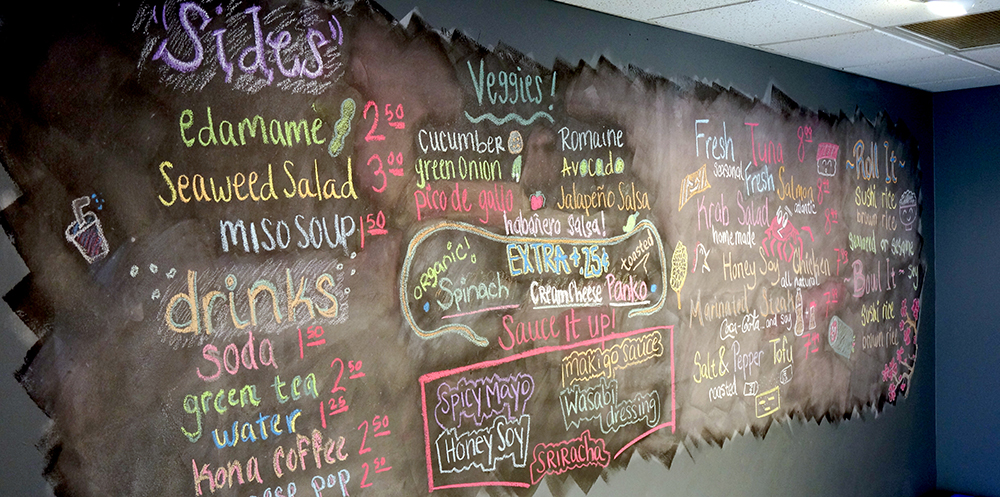 "Sides"
edamame 2.50
Seaweed Salad 3.00
miso soup 1.50
drinks
soda 1.50
green tea 2.50
water 1.25
kona coffee 2.50
pop 2.50
Veggies!
cucumber
Romaine
green Onion
Avocado
pico de gallo
Jalapeño Salsa
habañero salsa!
EXTRA + .25¢
organic!
Spinach
Cream Cheese
toasted
Panko
Sauce it up!
Spicy Mayo
makigo sauce
Wasabi dressing
Honey Soy
Sriracha
Fresh Tuna
seasonal Fresh Salmon
atlantic
Krab Salad
home made
Honey Soy Chicken
all natural
Marinated Steak
Coca-Cola and soy
Salt & Pepper Tofu
roasted
~Roll It~
sushi rice
brown rice
seaweed or sesame
~Bowl It~
sushi rice
brown rice